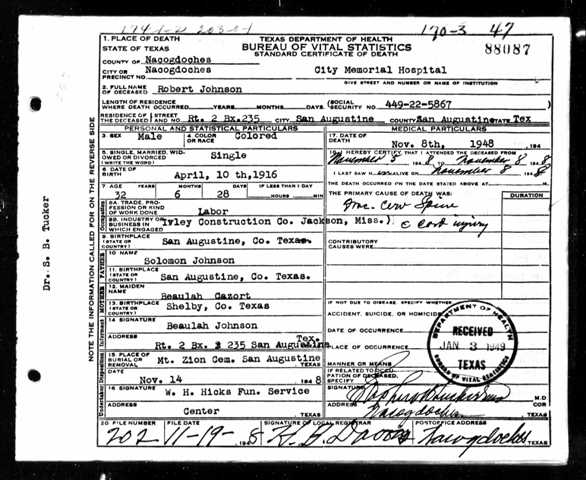 1794-2 203-1
170-3 47
TEXAS DEPARTMENT OF HEALTH
BUREAU OF VITAL STATISTICS
STANDARD CERTIFICATE OF DEATH
88087
1. PLACE OF DEATH
STATE OF TEXAS
COUNTY OF Nacogdoches
CITY OR PRECINCT NO. Nacogdoches City Memorial Hospital
GIVE STREET AND NUMBER OR NAME OF INSTITUTION
2. FULL NAME OF DECEASED Robert Johnson
LENGTH OF RESIDENCE WHERE DEATH OCCURRED YEARS MONTHS DAYS (SOCIAL SECURITY NO. 449-22-5867
RESIDENCE OF THE DECEASED STREET AND NO. Rt. 2 Bx. 235 CITY San Augustine COUNTY San Augustine STATE Tex
PERSONAL AND STATISTICAL PARTICULARS
3. SEX Male 4. COLOR OR RACE Colored
5. SINGLE, MARRIED, WIDOWED OR DIVORCED (WRITE THE WORD) Single
6. DATE OF BIRTH April, 10 th,1916
7. AGE YEARS MONTHS DAYS IF LESS THAN 1 DAY
32 6 28 HOURS MIN
8A. TRADE, PROFESSION OR KIND OF WORK DONE Labor
8B. INDUSTRY OR BUSINESS IN WHICH ENGAGED Ivley Construction Co. Jackson, Miss.)
9. BIRTHPLACE (STATE OR COUNTRY) San Augustine, Co. Texas.
FATHER
10 NAME Solomon Johnson
11. BIRTHPLACE (STATE OR COUNTRY) San Augustine, Co. Texas.
MOTHER
12. MAIDEN NAME Beaulah Cazort
13. BIRTHPLACE (STATE OR COUNTRY) Shelby, Co. Texas
Informant
14 SIGNATURE Beaulah Johnson
ADDRESS Rt. 2 Bx. 235 San Augustine Tex.
15. PLACE OF BURIAL OR REMOVAL Mt. Zion Cem. San Augustine
TEXAS
DATE Nov. 14 1948
16 SIGNATURE W. H. Hicks Fun. Service
ADDRESS Center TEXAS
MEDICAL PARTICULARS
17. DATE OF DEATH Nov. 8th, 1948 194
18. I HEREBY CERTIFY THAT I ATTENDED THE DECEASED FROM
November 8 1948 TO November 8 1948
I LAST SAW H ALIVE ON November 8 1948
THE DEATH OCCURRED ON THE DATE STATED ABOVE AT M.
THE PRIMARY CAUSE OF DEATH WAS: DURATION
Frac Cerv Spine
c cord injury
CONTRIBUTORY CAUSES WERE:
IF NOT DUE TO DISEASE, SPECIFY WHETHER:
ACCIDENT, SUICIDE, OR HOMICIDE
DATE OF OCCURRENCE
PLACE OF OCCURRENCE
MANNER OR MEANS
IF RELATED TO OCCUPATION OF DECEASED, SPECIFY
SIGNATURE M.D.
ADDRESS Nacogdoches TEXAS
DEPARTMENT OF HEALTH
RECEIVED
JAN 3 1949
TEXAS
BUREAU OF VITAL STATISTICS
20 FILE NUMBER FILE DATE SIGNATURE OF LOCAL REGISTRAR POSTOFFICE ADDRESS
202 11-19-8 Nacogdoches TEXAS
NOTE THE INFORMATION CALLED FOR ON THE REVERSE SIDE
Dr. S. B. Tucker